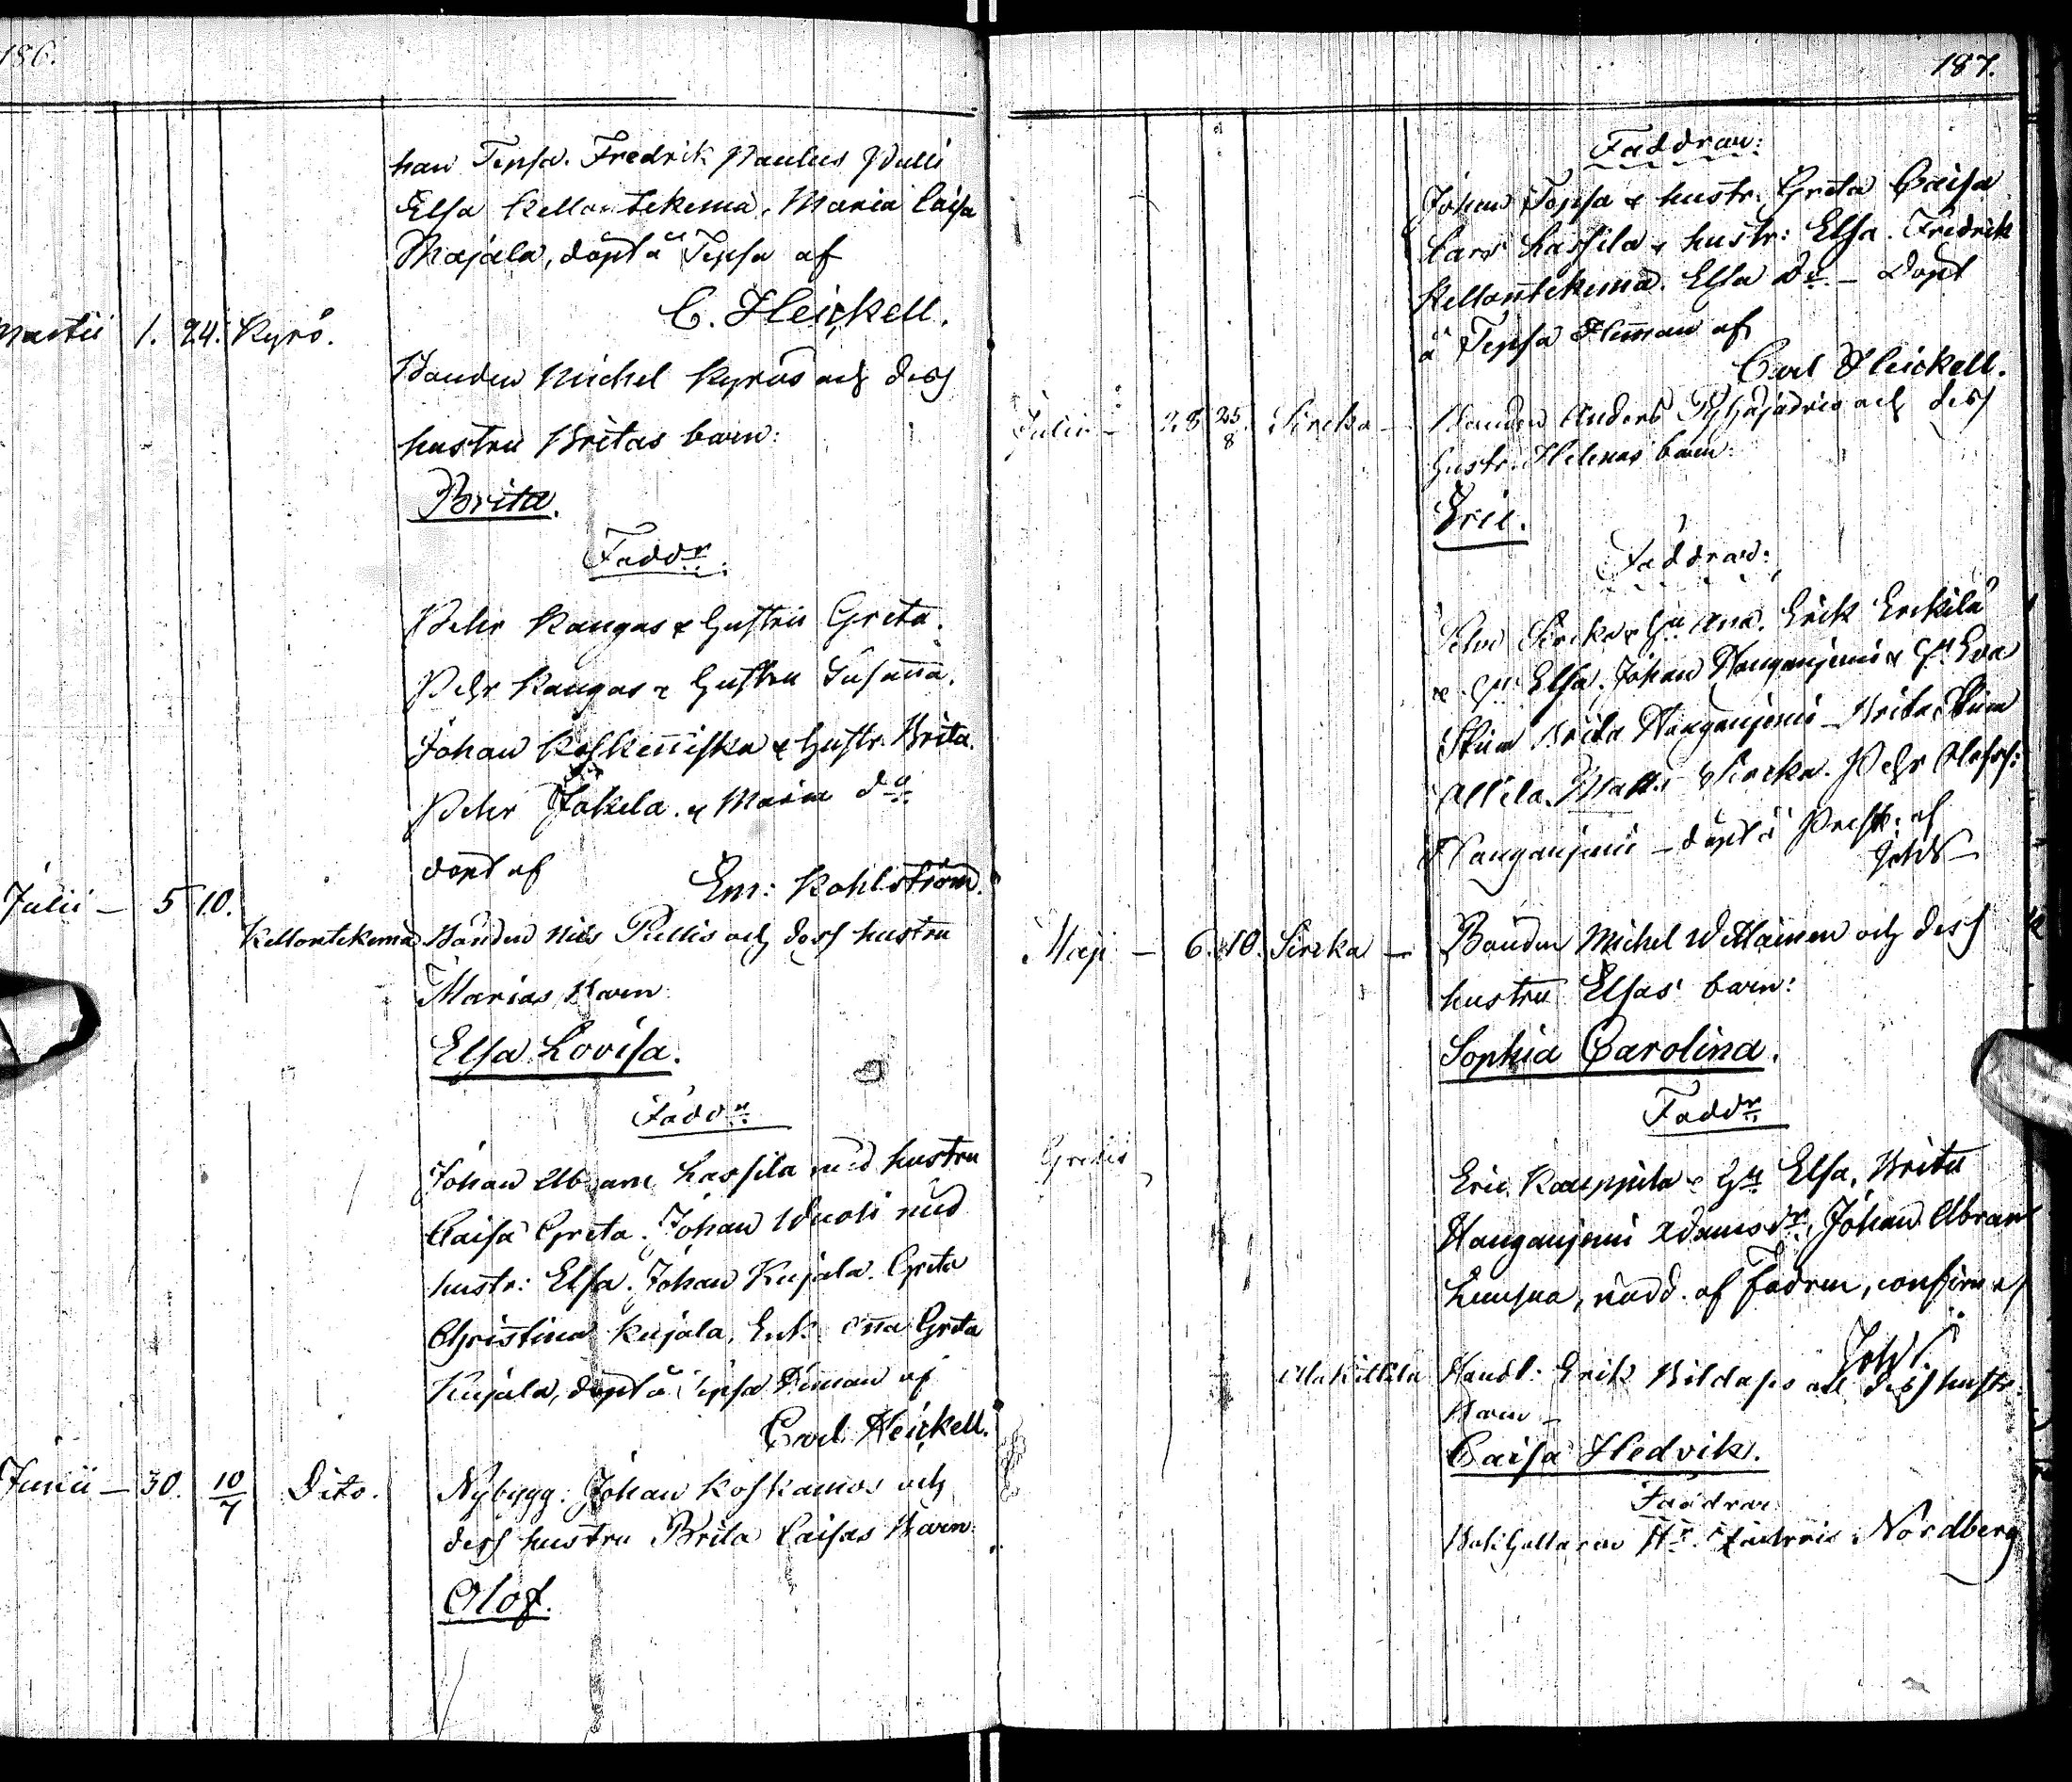 186.
han Tepsa. Fredrik Paulus Pulli
Elsa Kellontekemä, Maria Caisa
Majala, döpt å Tepsa af
C. Heickell.
Martii 1. 24. Kyrö.
Bonden Michel Kyrös och dess
hustru Britas barn:
Brita.
Faddr:
Pehr Kangas & hustru Greta.
Pehr Kangas & hustru Susanna.
Johan Koskenniska & hustr. Brita.
Pehr Jokela & Maria do
döpt af
Em: Kohlström.
Julii — 5 10.
Kellontekemä Bonden Nils Pullis och dess hustru
Marias Barn:
Elsa Lovisa.
Faddr
Johan Abram Lassila med hustru
Caisa Greta. Johan Wuoti med
hustr: Elsa. Johan Kujala. Greta
Christina Kujala, Enk. Anna Greta
Kujala, döpt å Tepsa Hemman af
Carl Heickell.
Junii — 30. 10/7 Dito.
Nybygg: Johan Koskamos och
dess hustru Brita Caisas Barn:
Olof.
187.
Faddrar:
Johan Tepsa & hustr. Greta Caisa
Lars Lassila & hustr: Elsa. Fredrik
Kellontekemä. Elsa do — Döpt
å Tepsa Hemman af
Carl Heickell.
Julii — 28 25/8 Sircka —
Bonden Anders och dess
hustr. Helenas barn:
Eric.
Faddrar:
Sircka & hu Anna. Erik Erckilä
& hu Elsa. Johan Hanganjemi & hu Eva
Brita Hanganjemi — Brita
Allila. Matts Sircka. Pehr
Hanganjemi — döpt å Prestg. af
Maji — 6. 10. Sircka —
Bonden Michel Wettainen och dess
hustru Elsas barn:
Sophia Carolina.
Faddr
Eric Kauppila & hu Elsa, Brita
Hanganjemi Adamsdr, Johan Abram
nödd. af Fadren, confirm. af
Ala Kittilä Handl: Erik och dess hustr.
Barn —
Caisa Hedvik.
Faddrar
Bokhållaren Hr. Nordberg